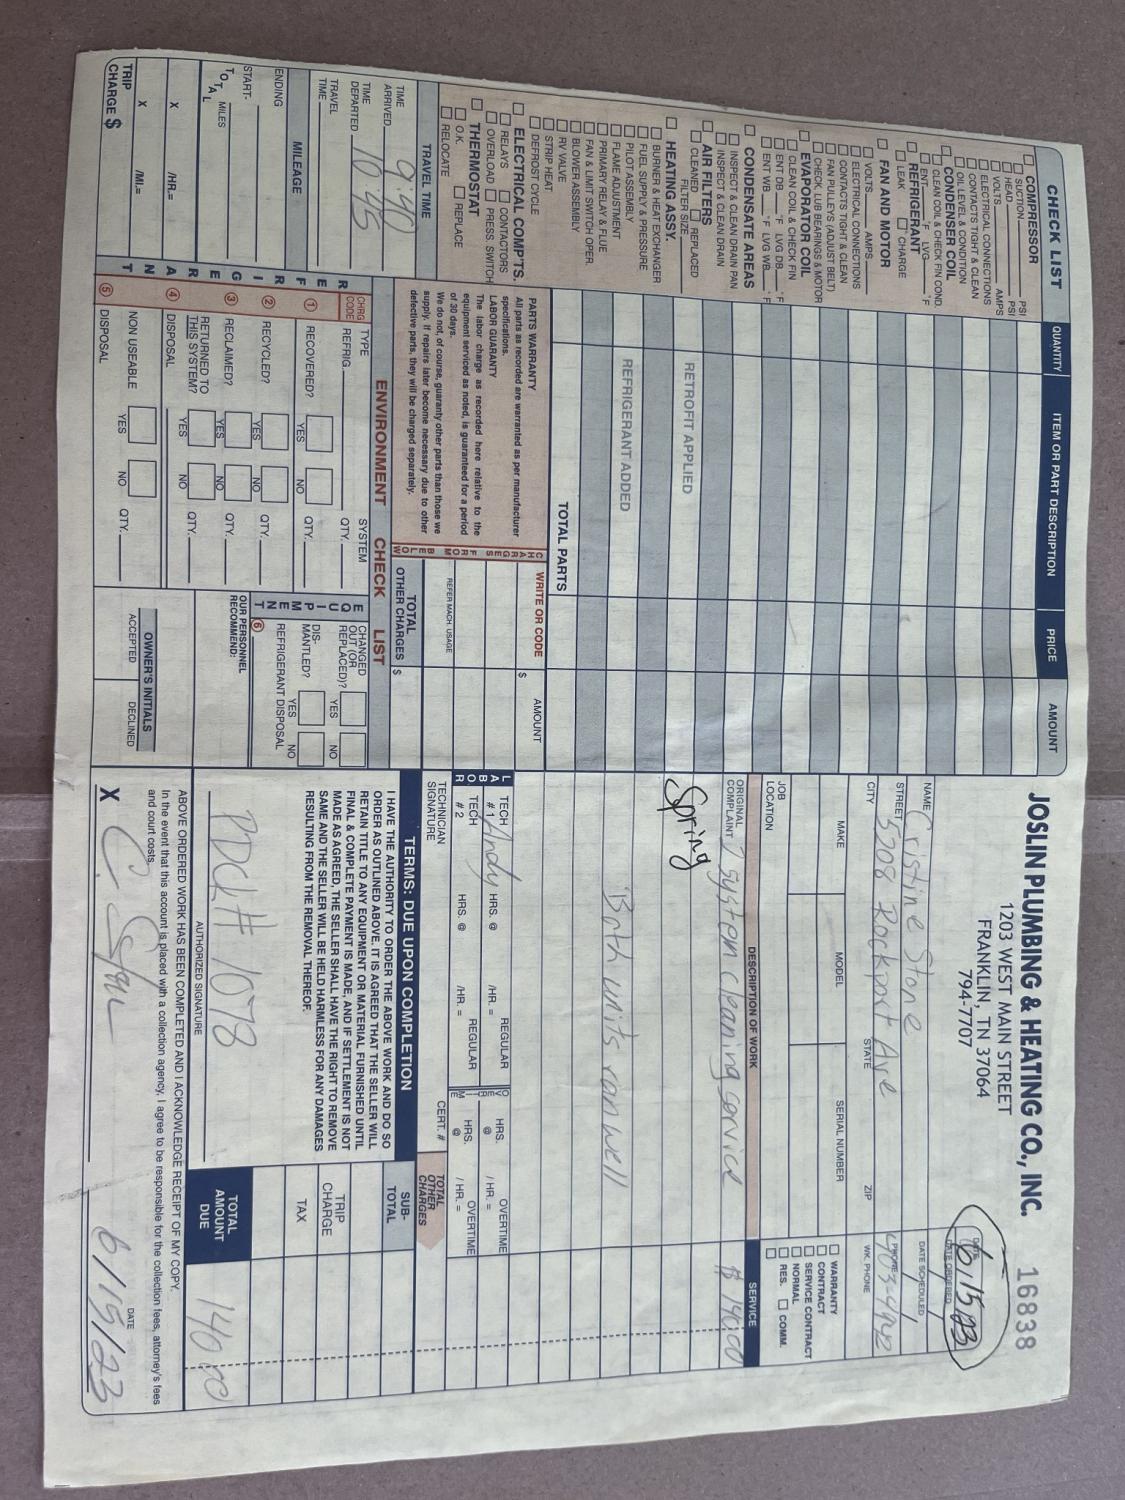 JOSLIN PLUMBING & HEATING CO., INC. 16838
1203 WEST MAIN STREET
FRANKLIN, TN 37064
794-7707
DATE 6/15/23
DATE ORDERED
NAME Cristine Stone
DATE SCHEDULED
STREET 5208 Rockport Ave
PHONE
CITY STATE ZIP
WK. PHONE
MAKE MODEL SERIAL NUMBER
WARRANTY
CONTRACT
SERVICE CONTRACT
NORMAL
RES. COMM.
JOB LOCATION
DESCRIPTION OF WORK SERVICE
ORIGINAL COMPLAINT 2 system cleaning service $ 140.00
Spring
Both units ran well
LABOR
TECH #1 Andy HRS. @ /HR. = REGULAR OVERTIME HRS. @ /HR. = OVERTIME
TECH #2 HRS. @ /HR. = REGULAR HRS. @ /HR. = OVERTIME
TECHNICIAN SIGNATURE CERT. #
TOTAL OTHER CHARGES
TERMS: DUE UPON COMPLETION
I HAVE THE AUTHORITY TO ORDER THE ABOVE WORK AND DO SO
ORDER AS OUTLINED ABOVE. IT IS AGREED THAT THE SELLER WILL
RETAIN TITLE TO ANY EQUIPMENT OR MATERIAL FURNISHED UNTIL
FINAL & COMPLETE PAYMENT IS MADE, AND IF SETTLEMENT IS NOT
MADE AS AGREED, THE SELLER SHALL HAVE THE RIGHT TO REMOVE
SAME AND THE SELLER WILL BE HELD HARMLESS FOR ANY DAMAGES
RESULTING FROM THE REMOVAL THEREOF.
SUB-TOTAL
TRIP CHARGE
TAX
PDCK# 1078
AUTHORIZED SIGNATURE
TOTAL AMOUNT DUE 140 00
ABOVE ORDERED WORK HAS BEEN COMPLETED AND I ACKNOWLEDGE RECEIPT OF MY COPY.
In the event that this account is placed with a collection agency, I agree to be responsible for the collection fees, attorney's fees
and court costs.
X 6/15/23
DATE
CHECK LIST
COMPRESSOR
SUCTION PSI
HEAD PSI
VOLTS AMPS
ELECTRICAL CONNECTIONS
CONTACTS TIGHT & CLEAN
OIL LEVEL & CONDITION
CONDENSER COIL
CLEAN COIL & CHECK FIN COND.
ENT. °F LVG. °F
REFRIGERANT
LEAK CHARGE
FAN AND MOTOR
VOLTS AMPS.
ELECTRICAL CONNECTIONS
CONTACTS TIGHT & CLEAN
FAN PULLEYS (ADJUST BELT)
CHECK LUB BEARINGS & MOTOR
EVAPORATOR COIL
CLEAN COIL & CHECK FIN
ENT DB. °F LVG DB. °F
ENT WB. °F LVG WB. °F
CONDENSATE AREAS
INSPECT & CLEAN DRAIN PAN
INSPECT & CLEAN DRAIN
AIR FILTERS
CLEANED REPLACED
FILTER SIZE
HEATING ASSY.
BURNER & HEAT EXCHANGER
FUEL SUPPLY & PRESSURE
PILOT ASSEMBLY
FLAME ADJUSTMENT
PRIMARY RELAY & FLUE
FAN & LIMIT SWITCH OPER.
BLOWER ASSEMBLY
RV VALVE
STRIP HEAT
DEFROST CYCLE
ELECTRICAL COMPTS.
RELAYS CONTACTORS
OVERLOAD PRESS. SWITCH
THERMOSTAT
O.K. REPLACE
RELOCATE
TRAVEL TIME
TIME ARRIVED 9:40
TIME DEPARTED 10:45
TRAVEL TIME
MILEAGE
ENDING
START-
TOTAL MILES
X /HR.=
X /MI.=
TRIP CHARGE $
QUANTITY ITEM OR PART DESCRIPTION PRICE AMOUNT
RETROFIT APPLIED
REFRIGERANT ADDED
TOTAL PARTS
PARTS WARRANTY
All parts as recorded are warranted as per manufacturer
specifications.
LABOR GUARANTY
The labor charge as recorded here relative to the
equipment serviced as noted, is guaranteed for a period
of 30 days.
We do not, of course, guaranty other parts than those we
supply. If repairs later become necessary due to other
defective parts, they will be charged separately.
CHARGES FROM BELOW
WRITE OR CODE AMOUNT
$
REFER MACH. USAGE
TOTAL OTHER CHARGES $
ENVIRONMENT CHECK LIST
REFRIGERANT
CHRG CODE TYPE REFRIG. SYSTEM QTY.
1 RECOVERED? YES NO QTY.
2 RECYCLED? YES NO QTY.
3 RECLAIMED? YES NO QTY.
RETURNED TO THIS SYSTEM? YES NO QTY.
4 DISPOSAL
NON USEABLE YES NO QTY.
5 DISPOSAL
EQUIPMENT
CHANGED OUT (OR REPLACED)? YES NO
DIS-MANTLED? YES NO
6 REFRIGERANT DISPOSAL
OUR PERSONNEL RECOMMEND:
OWNER'S INITIALS
ACCEPTED DECLINED